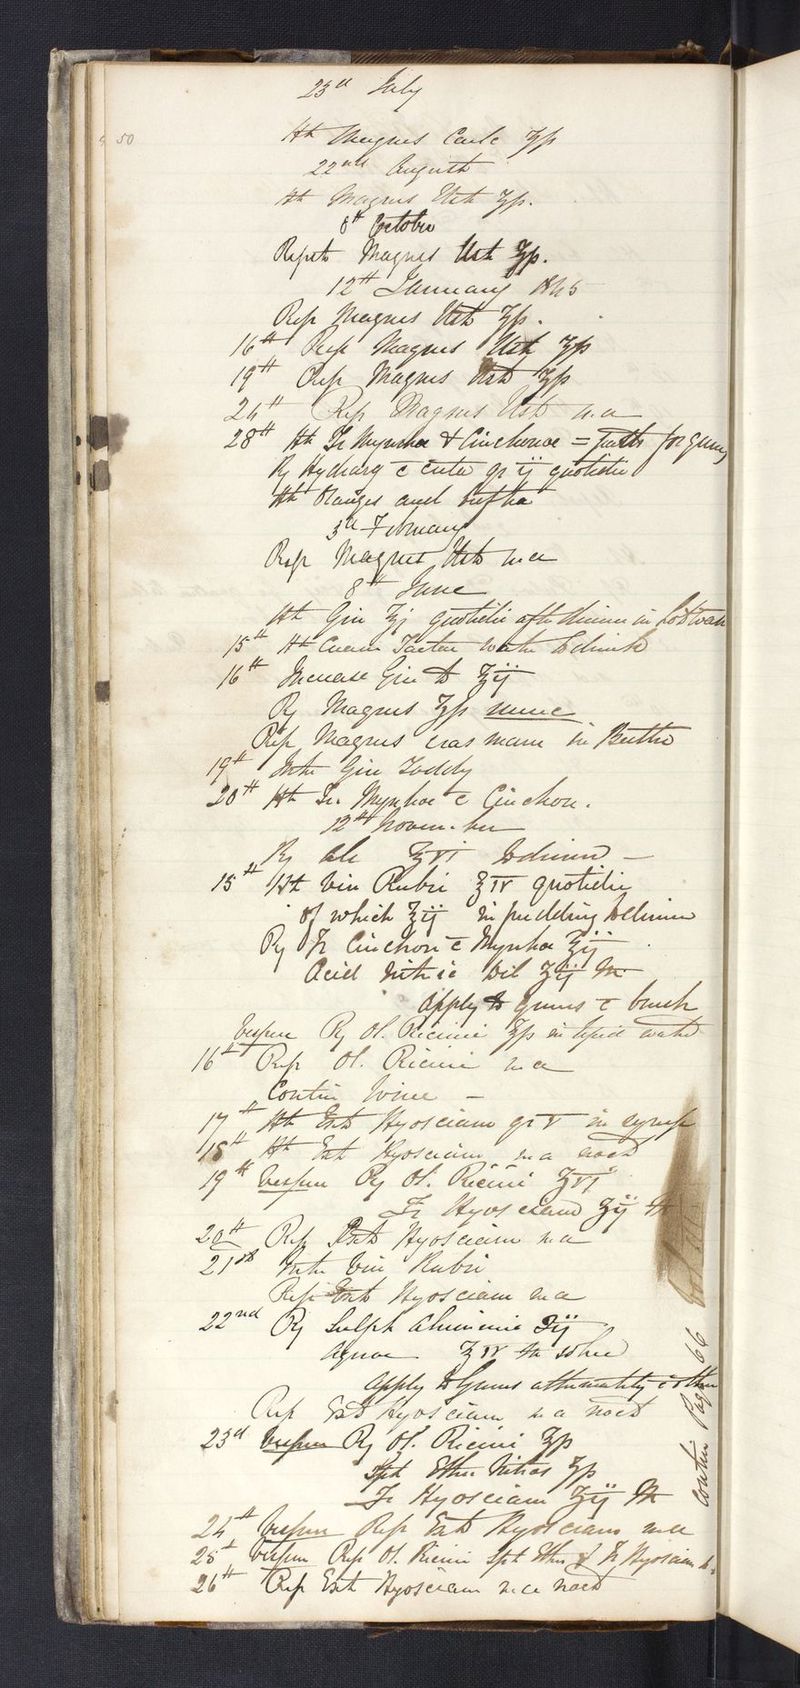 50
23rd July
Ht Magnes Carb ʒſs
22nd August
Ht Magnes Ust ʒſs.
8th October
Repet Magnes Ust ʒſs.
12th January 1845
Rep Magnes Ust ʒſs.
16th Rep Magnes Ust ʒſs
19th Rep Magnes Ust ʒſs
24th Rep Magnes Ust m a
28th Ht Tr Myrrha & Cinchonae = for gums
Rx Hydrarg c creta gr ij quotidie
Ht Oranges and
3d February
Rep Magnes Ust m a
8th June
Ht Gin ʒj quotidie after dinner in hot water
15th Ht Cream Tartar water to drink
16th Increase Gin to ʒij
Rx Magnes ʒſs nunc
Rep Magnes cras mane in Butter
19th Gin Toddy
20th Ht Tr Myrrhae c Cinchon.
12th November
Rx Ale ʒvi dinner
15th Ht Vin Rubri ʒiv quotidie
of which ʒij in pudding dinner
Rx Tr Cinchon c Myrrha ʒij
Acid Nitric Dil ʒij M
apply to gums c brush
Vespere Rx Ol. Ricini ʒſs in tepid water
16th Rep Ol. Ricini m a
Contin Wine
17th Ht Ext Hyosciam gr v in syrup
18th Ht Ext Hyosciam m a noct
19th Vespere Rx Ol. Ricini ʒvj
Tr Hyosciam ʒij M
20th Rep Ext Hyosciam m a
21st Vin Rubri
Rep Ext Hyosciam m a
22nd Rx Sulph Aluminis ʒij
Aquae ʒiv M solve
apply to Gums alternately c other
Rep Ext Hyosciam m a noct
23d Vespere Rx Ol. Ricini ʒſs
Spt Ether Nitros ʒſs
Tr Hyosciam ʒij M
24th Vespere Rep Ext Hyosciam m a
25th Vespere Rep Ol. Ricini Spt Ether & Tr Hyosciam
26th Rep Ext Hyosciam m a noct
Contin Page 66 Vol